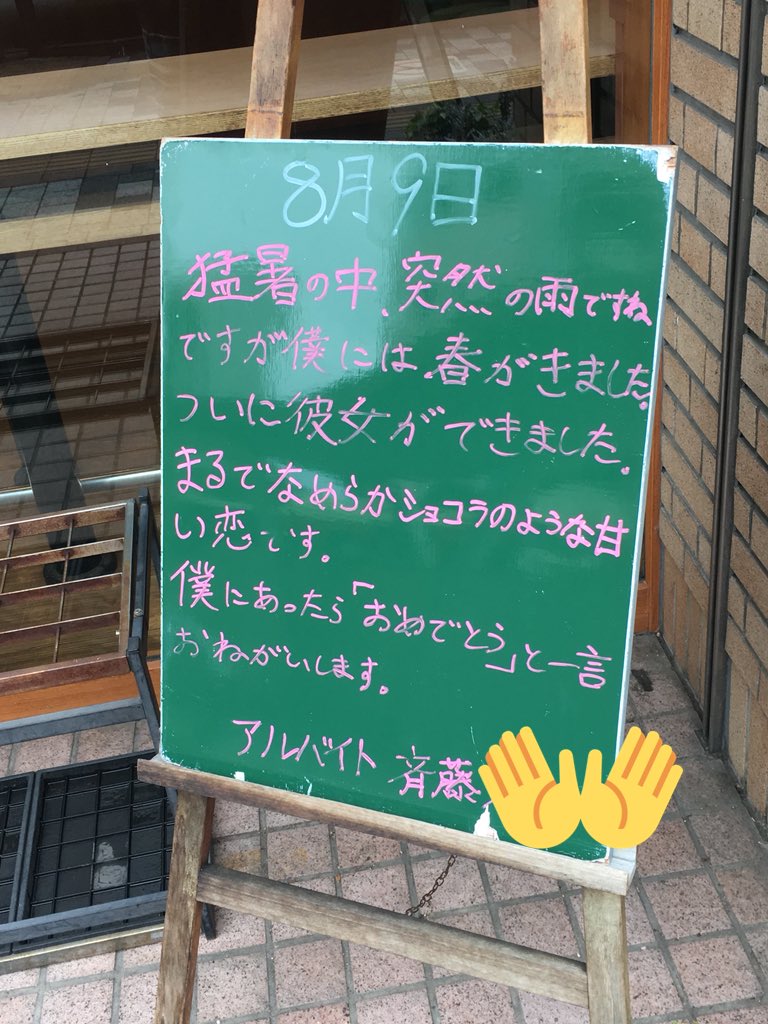 8月9日
猛暑の中、突然の雨ですね
ですが僕には、春がきました。
ついに彼女ができました。
まるでなめらかショコラのような甘
い恋です。
僕にあったら「おめでとう」と一言
おねがいします。
アルバイト 斉藤